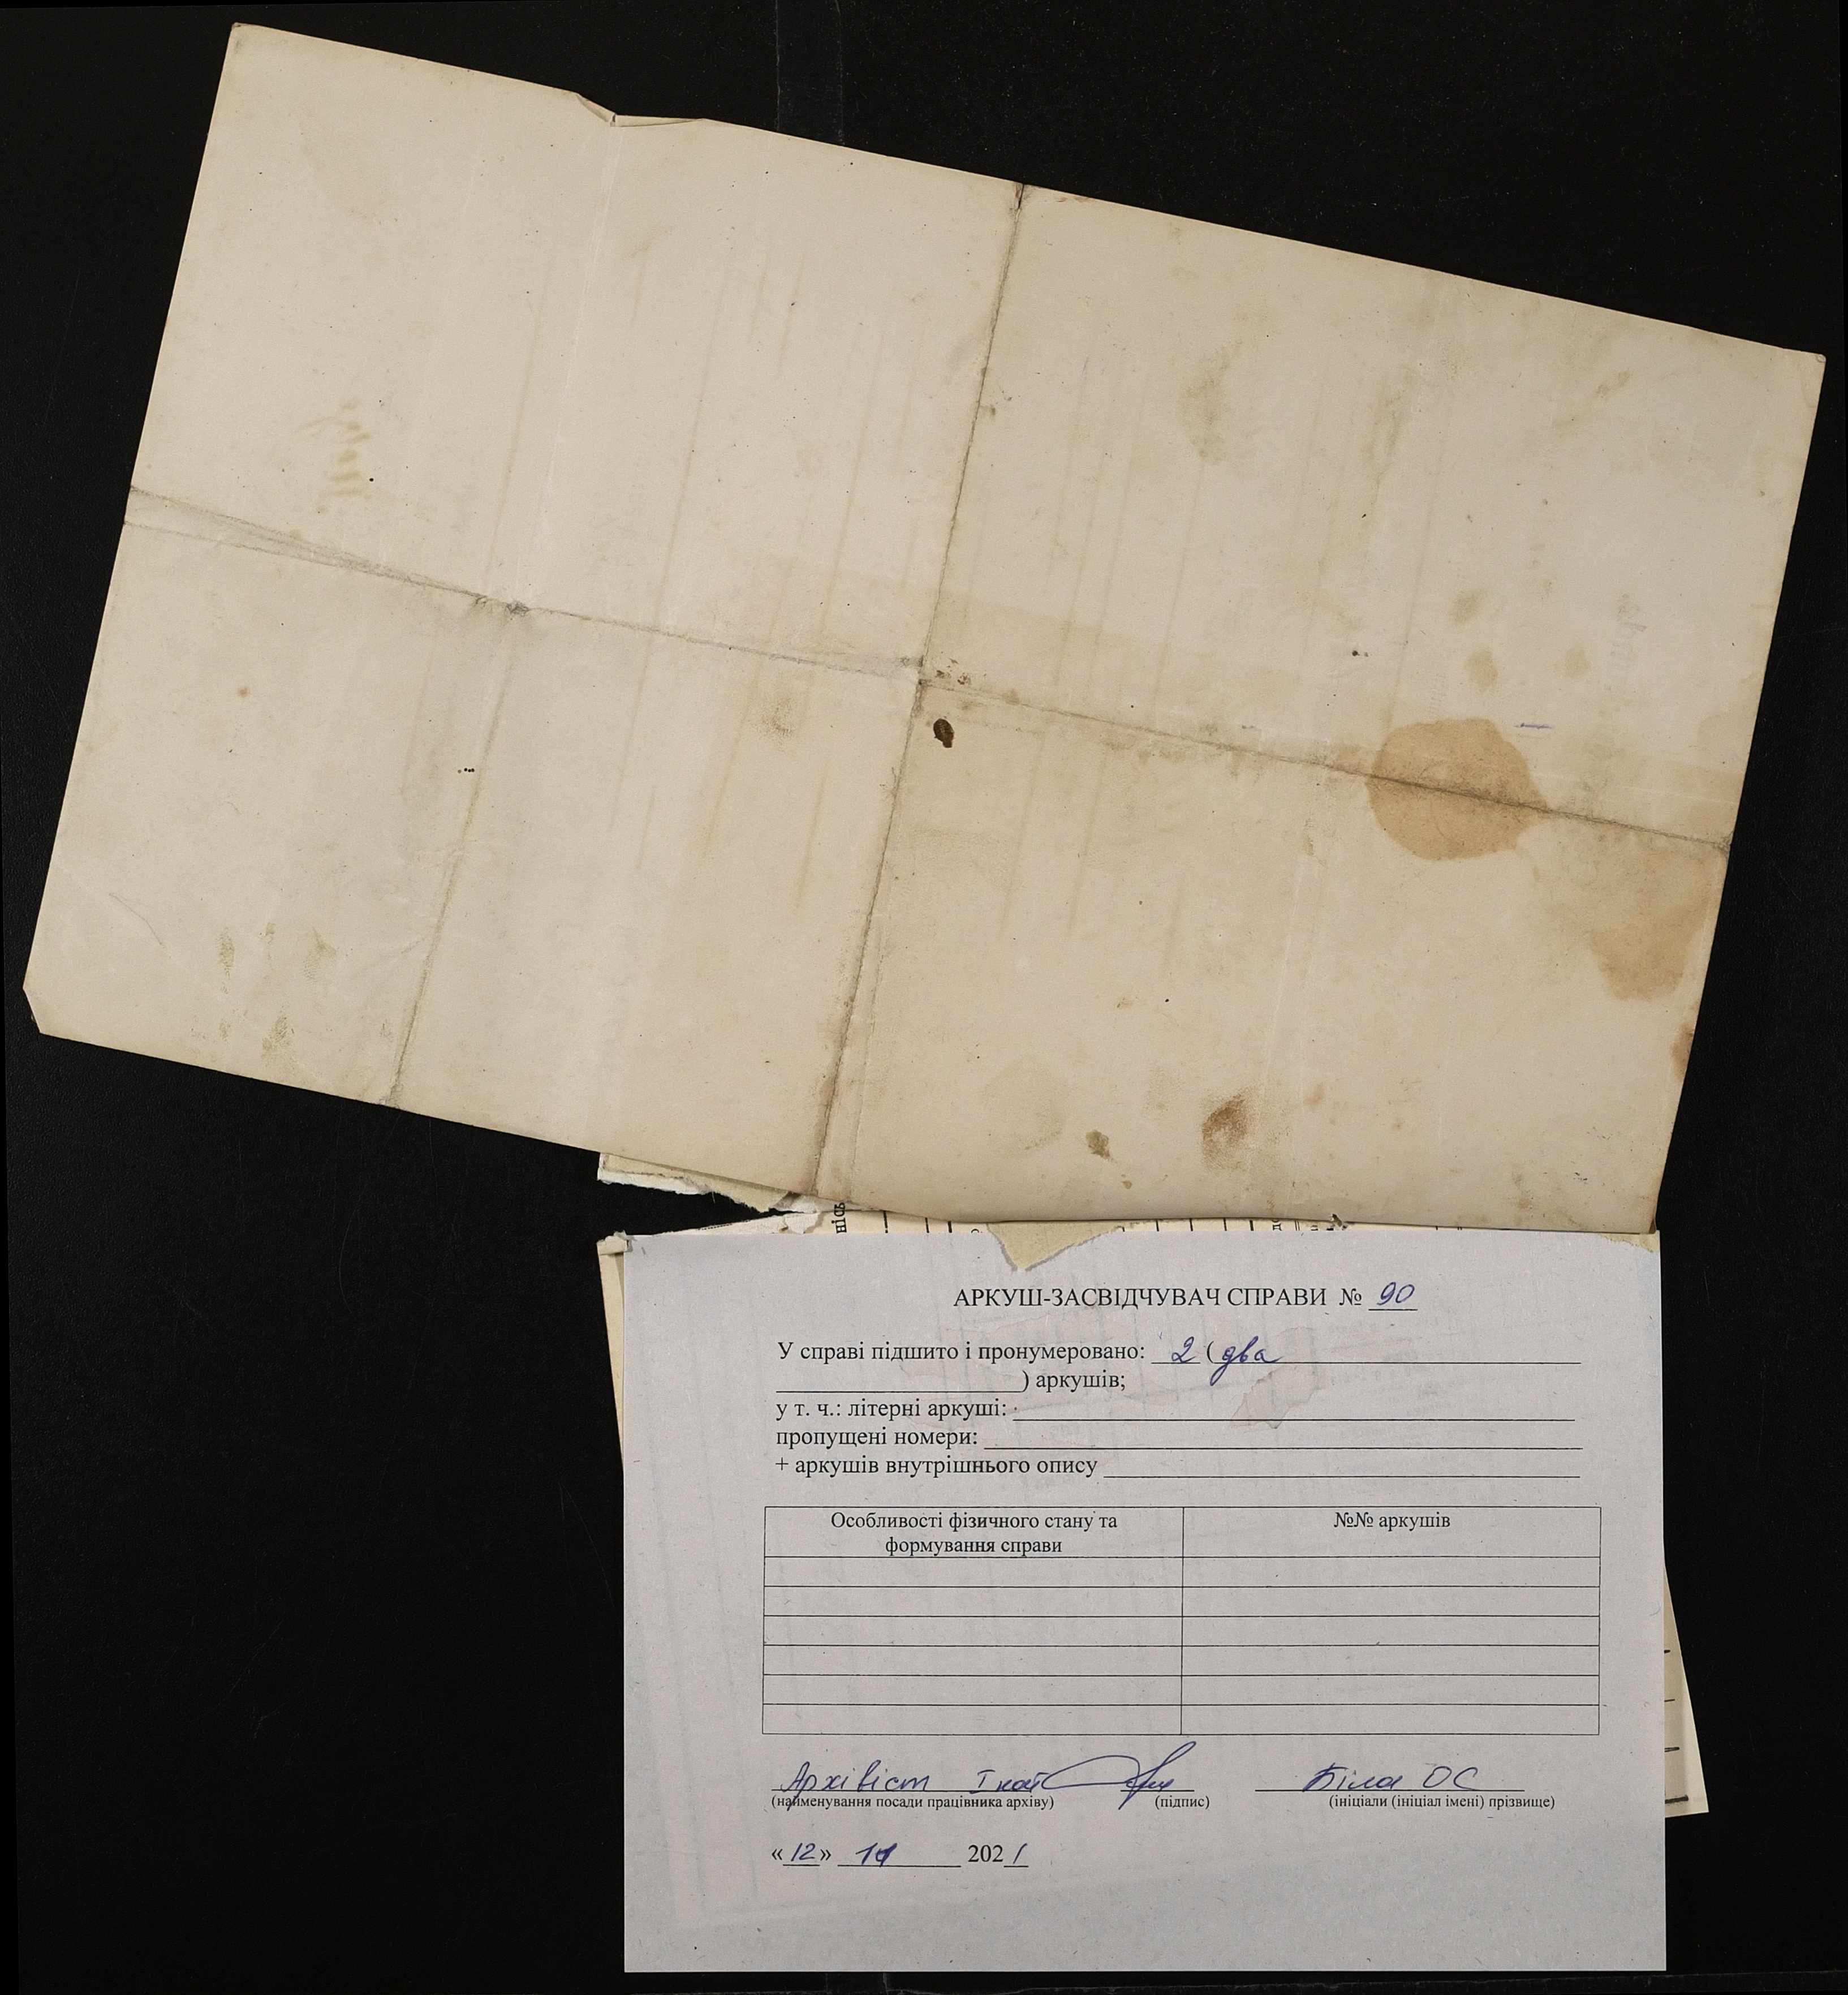 АРКУШ-ЗАСВІДЧУВАЧ СПРАВИ № 90
У справі підшито і пронумеровано: 2 (два
) аркушів;
у т. ч.: літерні аркуші:
пропущені номери:
+ аркушів внутрішнього опису
Особливості фізичного стану та формування справи
№№ аркушів
Архівіст І кат Біла ОС
(найменування посади працівника архіву) (підпис) (ініціали (ініціал імені) прізвище)
«12» 11 2021